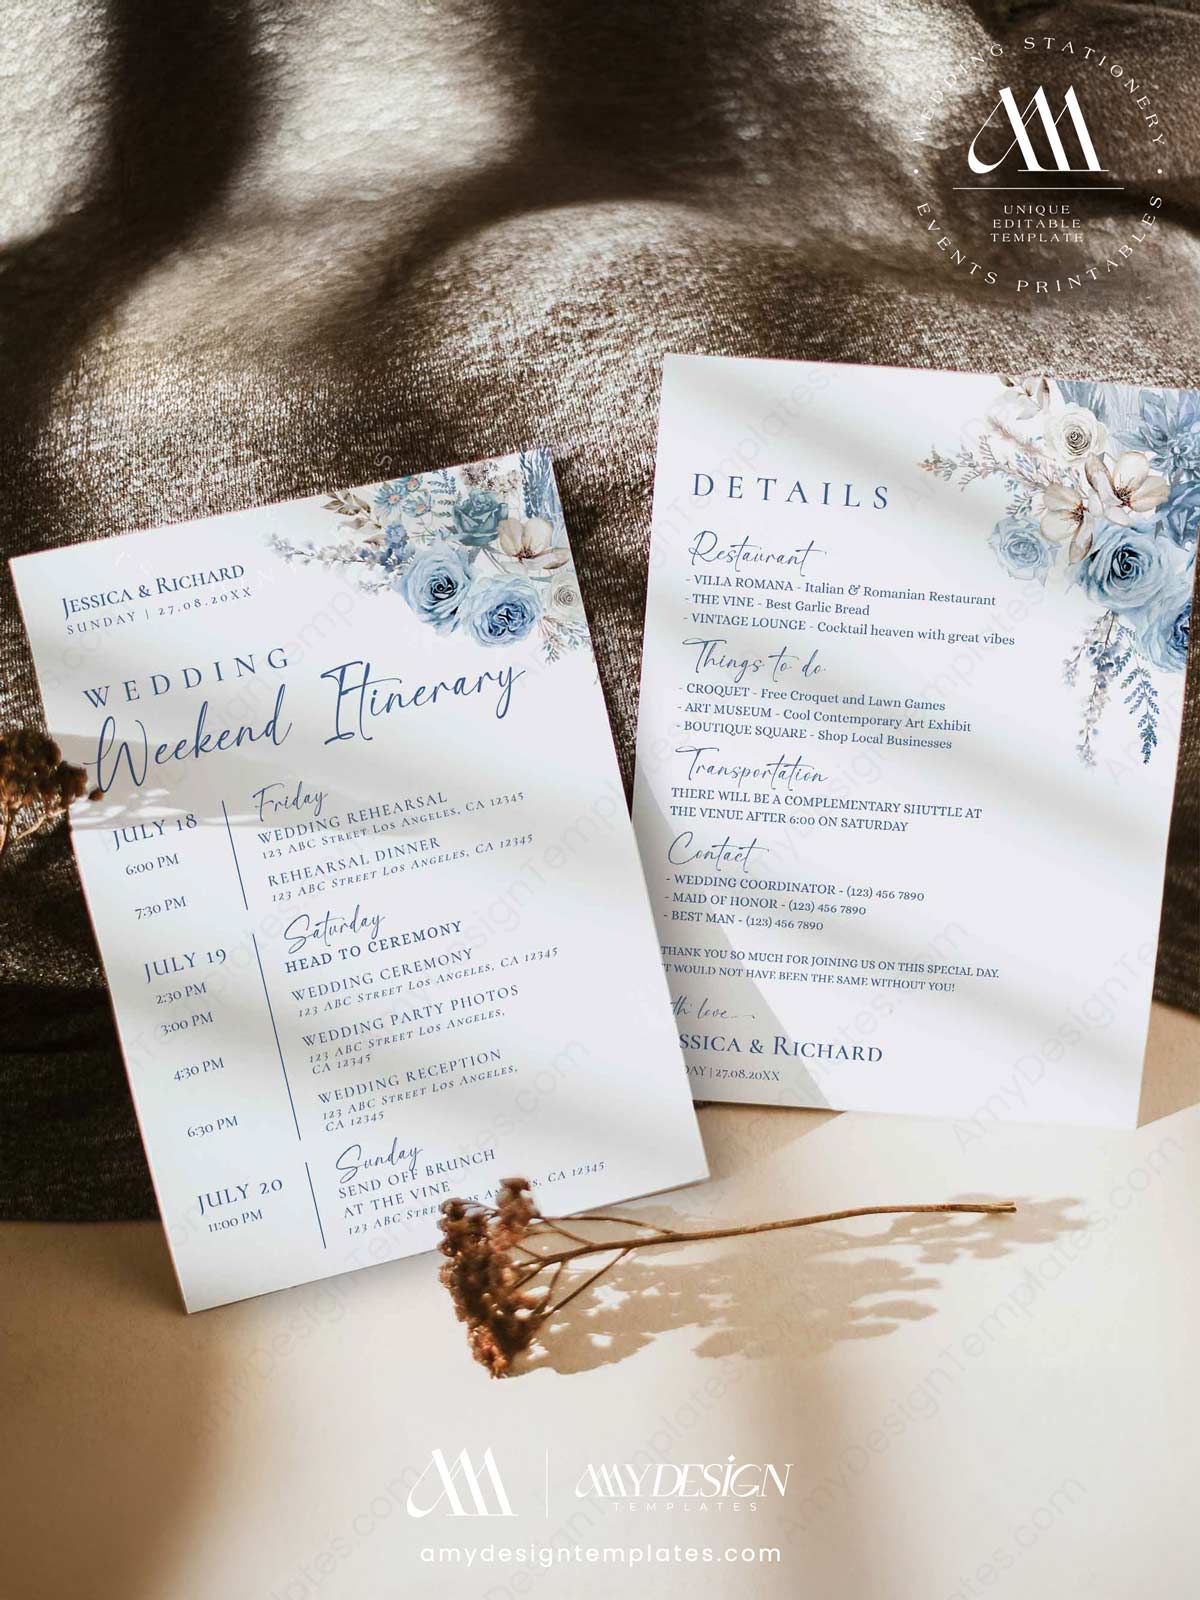 WEDDING STATIONERY
UNIQUE
EDITABLE
TEMPLATE
EVENTS PRINTABLES
JESSICA & RICHARD
SUNDAY | 27.08.20XX
WEDDING
Weekend Itinerary
JULY 18
Friday
6:00 PM
WEDDING REHEARSAL
123 ABC STREET LOS ANGELES, CA 12345
7:30 PM
REHEARSAL DINNER
123 ABC STREET LOS ANGELES, CA 12345
JULY 19
Saturday
2:30 PM
HEAD TO CEREMONY
3:00 PM
WEDDING CEREMONY
123 ABC STREET LOS ANGELES, CA 12345
4:30 PM
WEDDING PARTY PHOTOS
123 ABC STREET LOS ANGELES,
CA 12345
6:30 PM
WEDDING RECEPTION
123 ABC STREET LOS ANGELES,
CA 12345
JULY 20
Sunday
11:00 PM
SEND OFF BRUNCH
AT THE VINE
123 ABC STREET LOS ANGELES, CA 12345
DETAILS
Restaurant
- VILLA ROMANA - Italian & Romanian Restaurant
- THE VINE - Best Garlic Bread
- VINTAGE LOUNGE - Cocktail heaven with great vibes
Things to do
- CROQUET - Free Croquet and Lawn Games
- ART MUSEUM - Cool Contemporary Art Exhibit
- BOUTIQUE SQUARE - Shop Local Businesses
Transportation
THERE WILL BE A COMPLEMENTARY SHUTTLE AT
THE VENUE AFTER 6:00 ON SATURDAY
Contact
- WEDDING COORDINATOR - (123) 456 7890
- MAID OF HONOR - (123) 456 7890
- BEST MAN - (123) 456 7890
THANK YOU SO MUCH FOR JOINING US ON THIS SPECIAL DAY.
IT WOULD NOT HAVE BEEN THE SAME WITHOUT YOU!
th love...
SSICA & RICHARD
DAY | 27.08.20XX
AMYDESIGN
TEMPLATES
amydesigntemplates.com